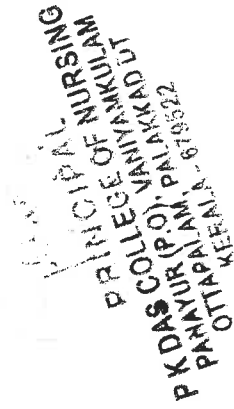 PRINCIPAL
P K DAS COLLEGE OF NURSING
PANAYUR (P.O), VANIYAMKULAM
OTTAPALAM, PALAKKAD DT
KERALA - 679522